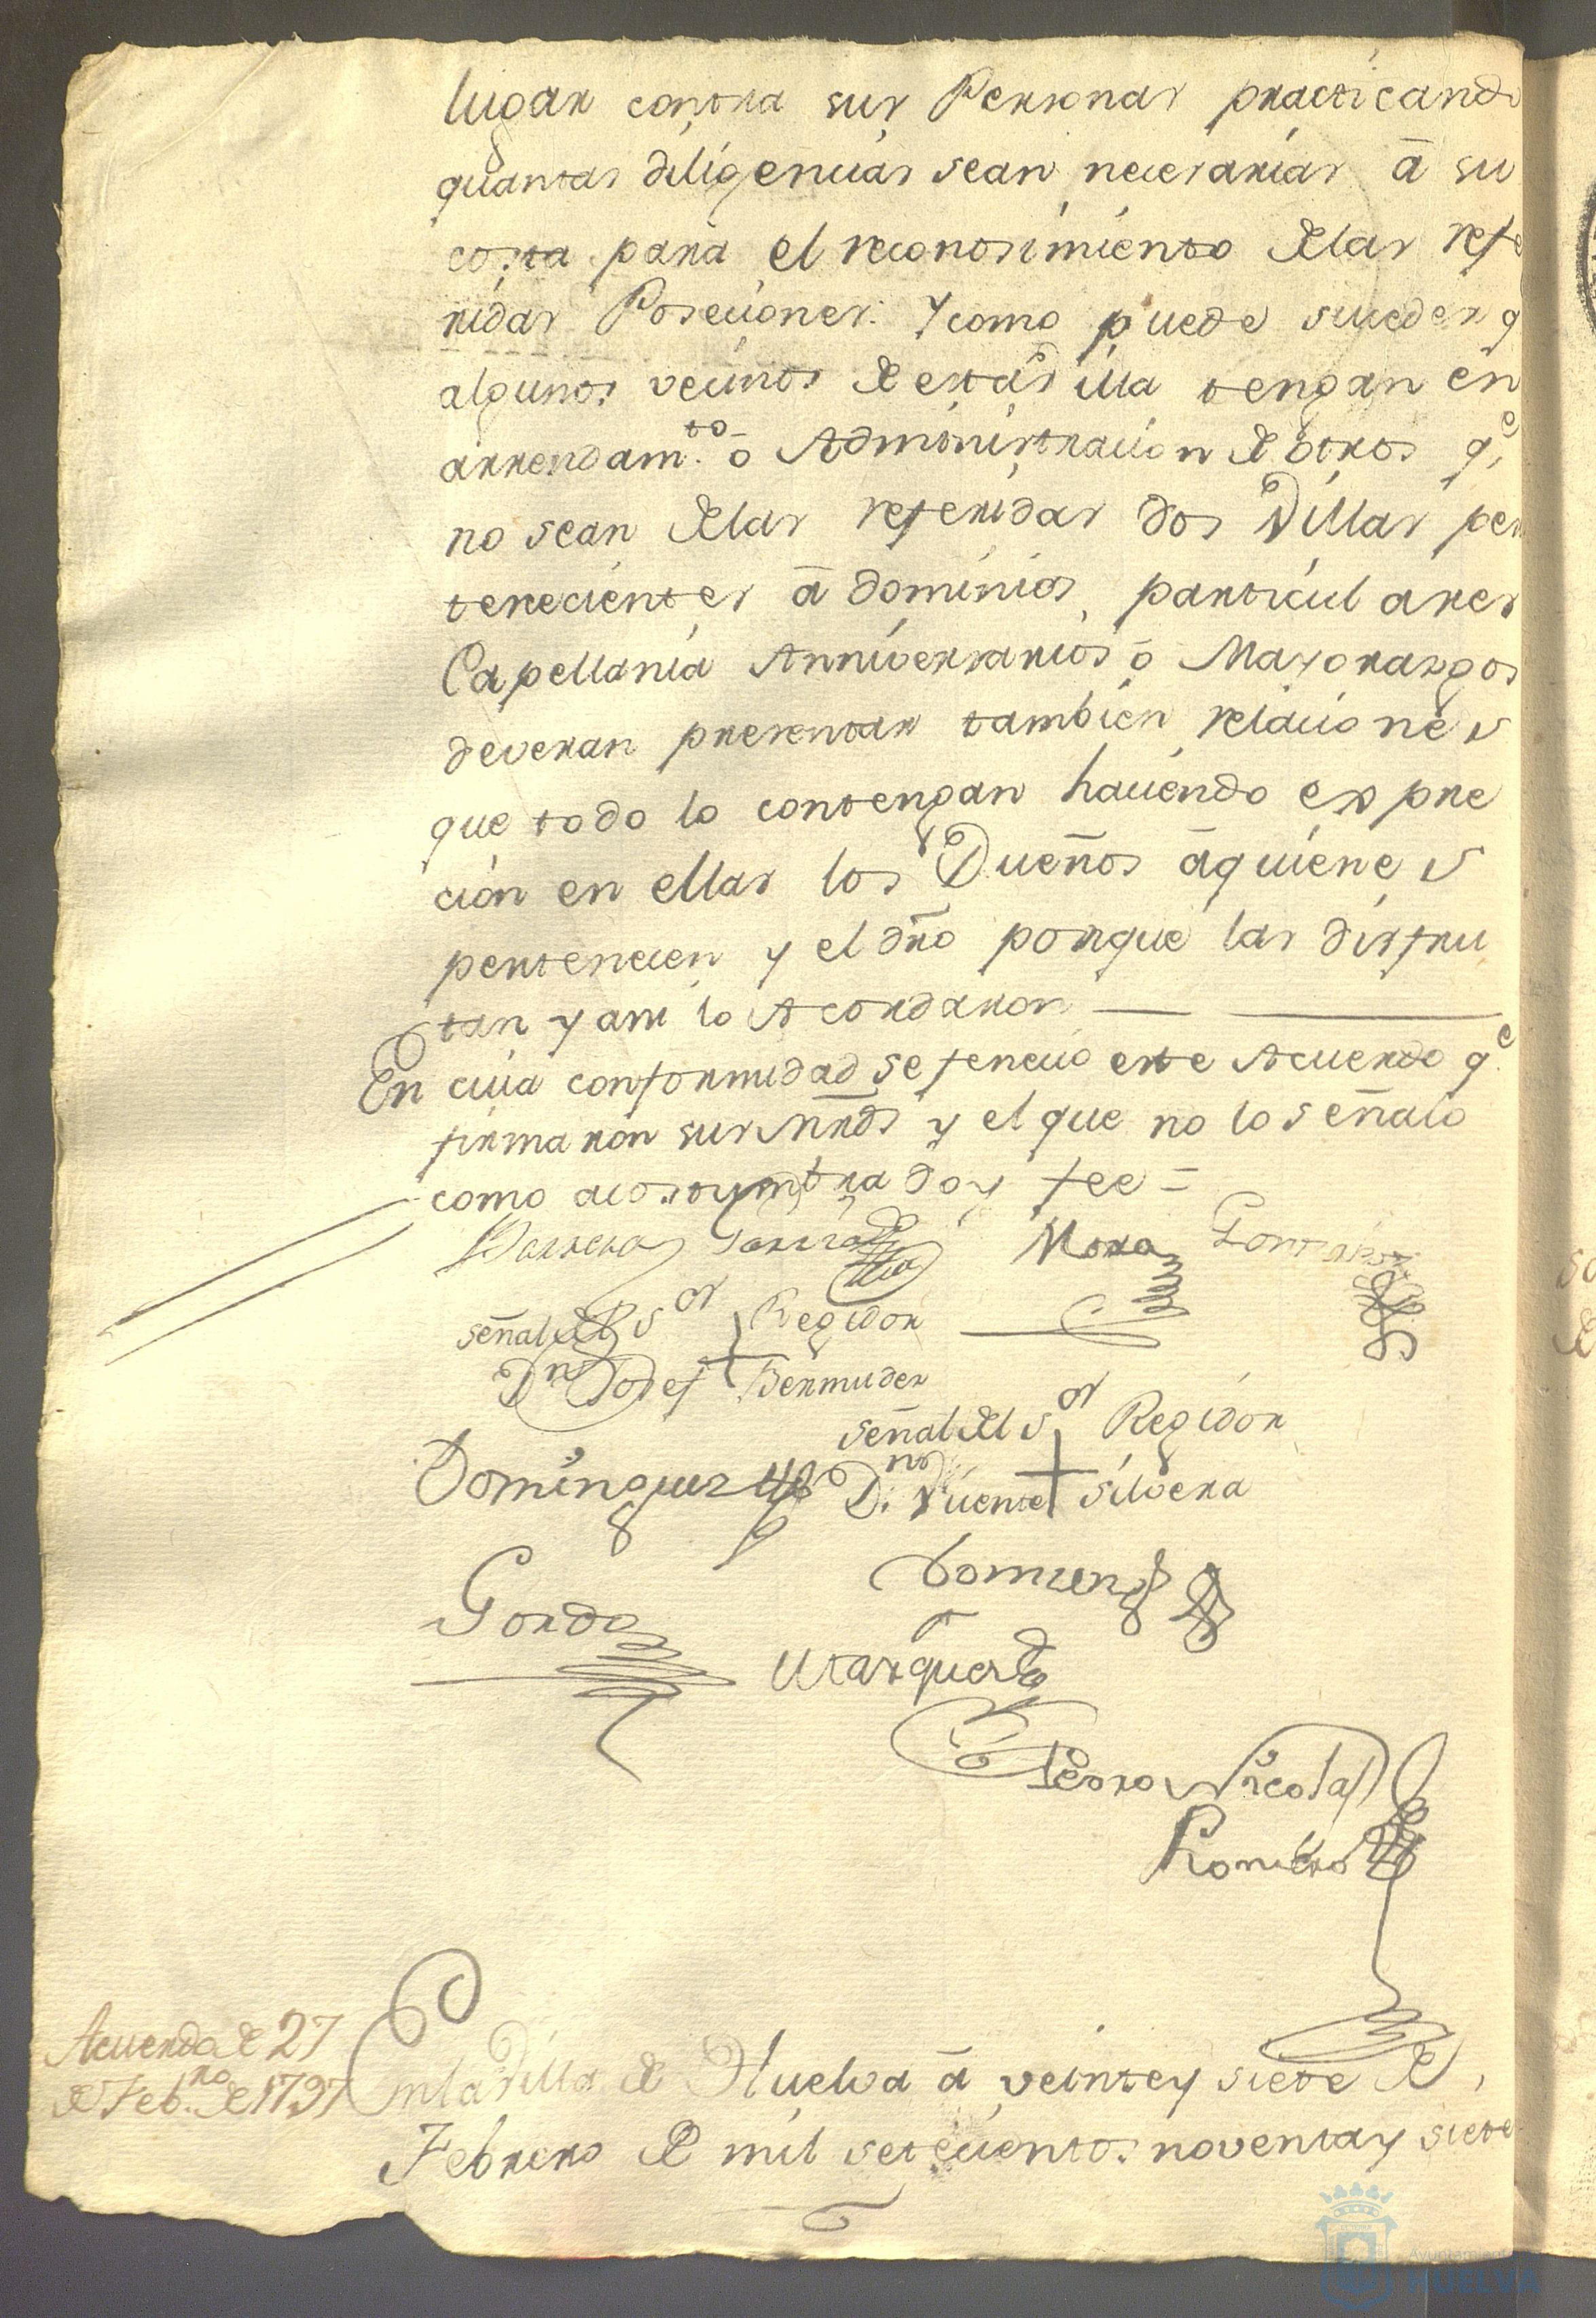 lugar contra sus Personas practicando
quantas diligencias sean necesarias â su
costa para el reconosimiento delas refe
ridas Poseciones. Y como puede suceder q
algunos vecinos de esta Villa tengan en
arrendam.to ô Administracion de otros q.e
no sean delas referidas dos Villas per
tenecientes â dominios particulares
Capellania Anniversarios ô Mayorazgos
deveran presentar tambien relaciones
que todo lo contengan haciendo expre
cion en ellas los Dueños âquienes
pertenecen y el dño porque las disfru
tan y asi lo Acordaron
En cuia conformidad se fenecio este Acuerdo q.e
firmaron sus mrds y el que no lo señalo
como acostumbra doy fee =
Barrera Garcia Mora
señal del S.or Regidor
Dn Josef Bermudez
señal del S.or Regidor
Dominguez D.n Vicente Silvera
Gordo
Marquez
Pedro Nicolas
Romero
Acuerdo de 27
de Feb.ro de 1797
En la Villa de Huelva â veinte y siete de
Febrero de mil setecientos noventa y siete
Ayuntamiento
HUELVA